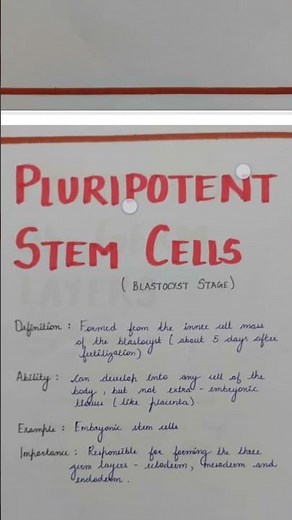 PLURIPOTENT
STEM CELLS
( BLASTOCYST STAGE )
Definition : Formed from the inner cell mass
of the blastocyst ( about 5 days after
fertilization )
Ability : Can develop into any cell of the
body , but not extra - embryonic
tissues ( like placenta ) .
Example : Embryonic stem cells
Importance : Responsible for forming the three
germ layers - ectoderm , mesoderm and
endoderm .